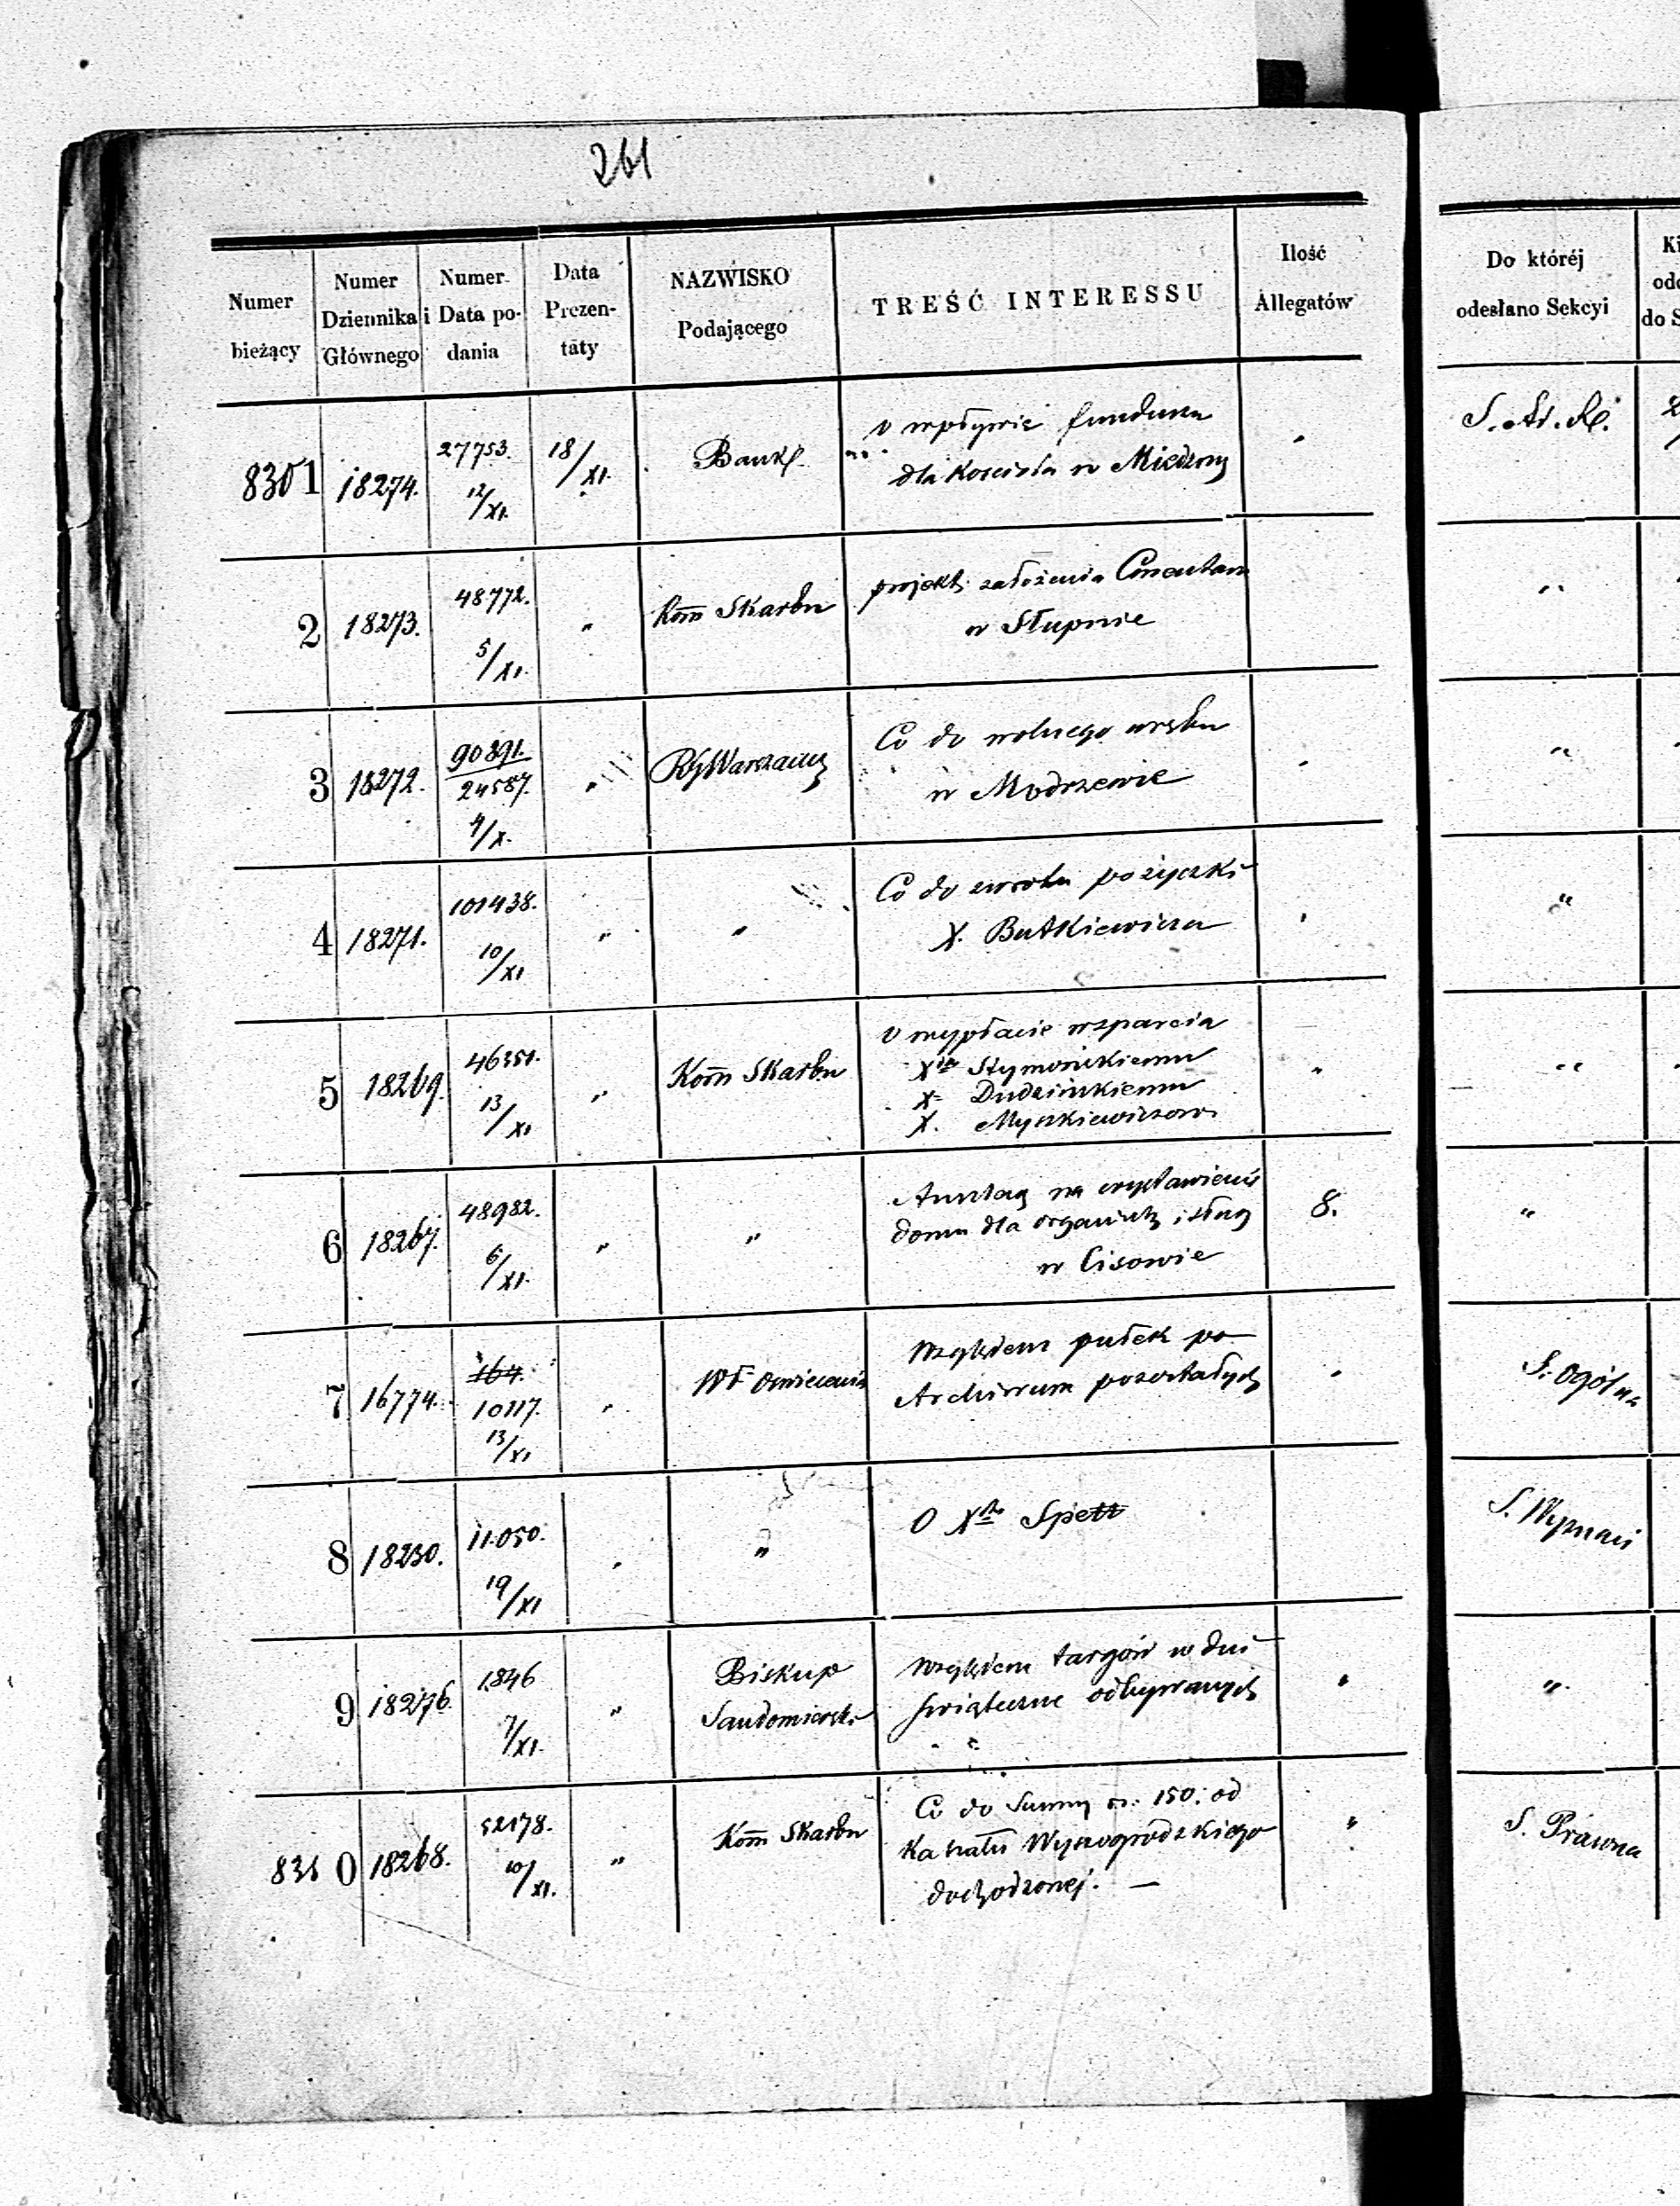 261
Numer bieżący
Numer Dziennika Głównego
Numer i Data podania
Data Prezentaty
NAZWISKO Podającego
TREŚĆ INTERESSU
Ilość Allegatów
Do któréj odesłano Sekcyi
8301 18274. 27753. 12/XI. 18/XI. Bank P. O wpływie funduszu
dla Kościoła w Miedzny
2 18273. 48772. 5/XI. " Kom̄ Skarbu projekt założenia Cmentarza
w Słupnie "
3 18272. 90891. 24587. 4/X. " RG Warszawy Co do wolnego wrębu
w Modrzewie "
4 18271. 101438. 10/XI " " Co do zwrotu pożyczki
X. Butkiewicza "
5 18269. 46351. 13/XI " Kom̄ Skarbu O wypłacie wsparcia
Xdz Szymońskiemu
X= Dudzińskiemu
X. Myszkiewiczowi "
6 18267. 48982. 6/XI. " " Anszlag na wystawienie
domu dla organisty i sług
w Cisowie 8. "
7 16774. 10117. 13/XI " Wł Oświecenia Względem pułek po
Archiwum pozostałych S. Ogólna
8 18230. 11.050. 19/XI " O Xdz Spett S. Wyznań
9 18276. 1846 7/XI. " Biskup
Sandomierski Względem targów w dni
świąteczne odbywanych " "
8310 18268. 52178. 10/XI. " Kom̄ Skarbu Co do Summy rs. 150. od
Kahału Wyszogrodzkiego
dochodzonej. — " S. Prawna